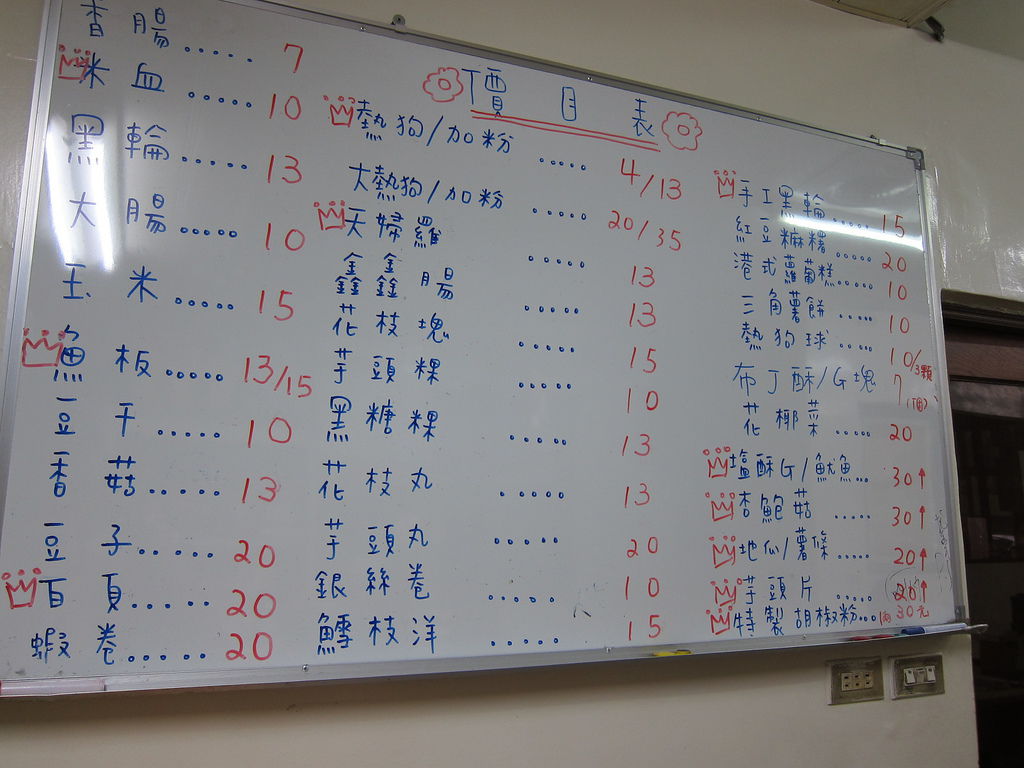 價目表
香腸..... 7
米血..... 10
黑輪..... 13
大腸..... 10
玉米..... 15
魚板..... 13/15
豆干..... 10
香菇..... 13
豆子..... 20
百頁..... 20
蝦卷..... 20
熱狗/加粉..... 4/13
大熱狗/加粉..... 20/35
天婦羅..... 13
鑫鑫腸..... 13
花枝塊..... 15
芋頭粿..... 10
黑糖粿..... 13
花枝丸..... 13
芋頭丸..... 20
銀絲卷..... 10
鱈枝洋..... 15
手工黑輪..... 15
紅豆麻糬..... 20
港式蘿蔔糕..... 10
三角薯餅..... 10
熱狗球..... 10/3顆
布丁酥/G塊 7
花椰菜..... 20
塩酥G/魷魚... 30↑
杏鮑菇..... 30↑
地瓜/薯條..... 20↑
芋頭片..... 20↑
特製胡椒粉... 30元